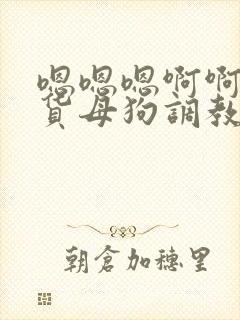 嗯嗯嗯啊啊
母狗調教
朝倉加穗里